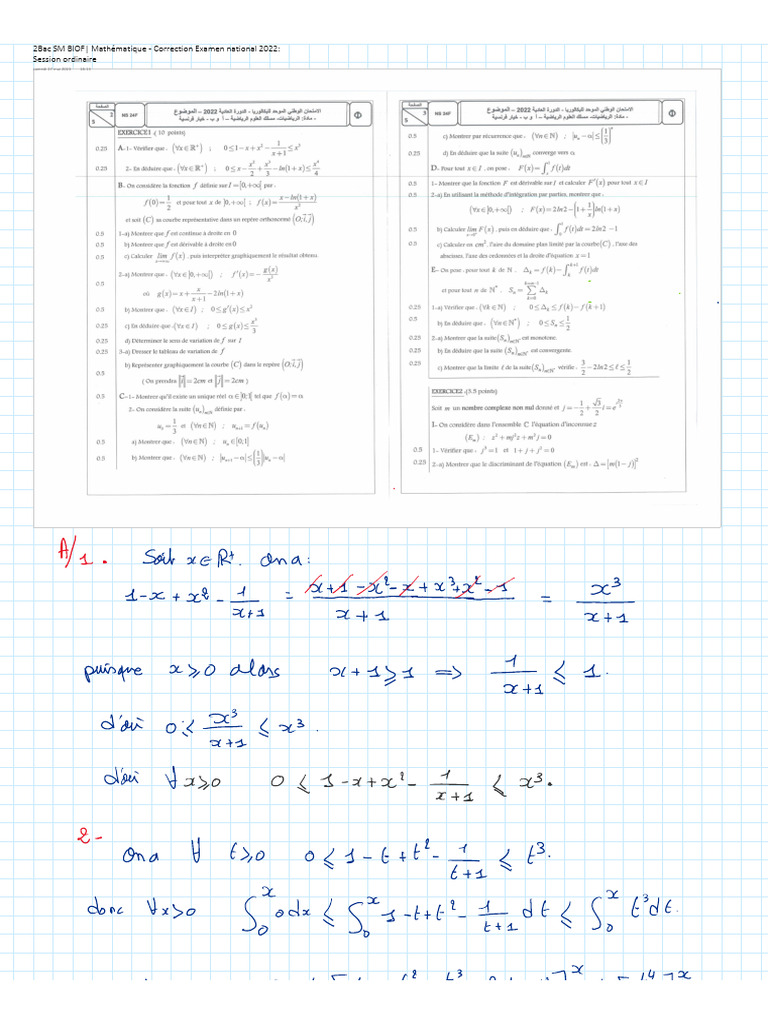 2Bac SM BIOF| Mathématique - Correction Examen national 2022:
Session ordinaire
الصفحة
2
5
NS 24F
الامتحان الوطني الموحد للبكالوريا - الدورة العادية 2022 – الموضوع
- مادة: الرياضيات- مسلك العلوم الرياضية – أ و ب - خيار فرنسية
EXERCICE1 : ( 10 points)
0.25 A-1- Vérifier que : (∀x∈ℝ⁺) ; 0≤1-x+x²-1/(x+1)≤x³
0.25 2- En déduire que : (∀x∈ℝ⁺) ; 0≤x-x²/2+x³/3-ln(1+x)≤x⁴/4
B- On considère la fonction f définie sur I=[0,+∞[ par :
f(0)=1/2 et pour tout x de ]0,+∞[ ; f(x)=(x-ln(1+x))/x²
et soit (C) sa courbe représentative dans un repère orthonormé (O;i,j)
0.5 1-a) Montrer que f est continue à droite en 0
0.5 b) Montrer que f est dérivable à droite en 0
0.5 c) Calculer lim f(x) x→+∞, puis interpréter graphiquement le résultat obtenu.
0.5 2-a) Montrer que : (∀x∈]0,+∞[) ; f'(x)=-g(x)/x³
où g(x)=x+x/(x+1)-2ln(1+x)
0.5 b) Montrer que : (∀x∈I) ; 0≤g'(x)≤x²
0.25 c) En déduire que : (∀x∈I) ; 0≤g(x)≤x³/3
0.25 d) Déterminer le sens de variation de f sur I
0.25 3-a) Dresser le tableau de variation de f
0.5 b) Représenter graphiquement la courbe (C) dans le repère (O;i,j)
( On prendra ‖i‖=2cm et ‖j‖=2cm )
0.5 C-1- Montrer qu'il existe un unique réel α∈]0;1[ tel que f(α)=α
2- On considère la suite (uₙ)n∈ℕ définie par :
u₀=1/3 et (∀n∈ℕ) ; uₙ₊₁=f(uₙ)
0.5 a) Montrer que : (∀n∈ℕ) ; uₙ∈[0;1]
0.5 b) Montrer que : (∀n∈ℕ) ; |uₙ₊₁-α|≤(1/3)|uₙ-α|
الصفحة
3
5
NS 24F
الامتحان الوطني الموحد للبكالوريا - الدورة العادية 2022 – الموضوع
- مادة: الرياضيات- مسلك العلوم الرياضية – أ و ب - خيار فرنسية
0.5 c) Montrer par récurrence que : (∀n∈ℕ) ; |uₙ-α|≤(1/3)ⁿ
0.25 d) En déduire que la suite (uₙ)n∈ℕ converge vers α
D- Pour tout x∈I , on pose : F(x)=∫ₓ¹ f(t)dt
0.5 1- Montrer que la fonction F est dérivable sur I et calculer F'(x) pour tout x∈I
0.5 2-a) En utilisant la méthode d'intégration par parties, montrer que :
(∀x∈]0,+∞[) ; F(x)=2ln2-(1+1/x)ln(1+x)
0.5 b) Calculer lim F(x) x→0⁺, puis en déduire que : ∫₀¹ f(t)dt=2ln2-1
0.5 c) Calculer en cm², l'aire du domaine plan limité par la courbe(C) , l'axe des
abscisses, l'axe des ordonnées et la droite d'équation x=1
E- On pose : pour tout k de ℕ , Δₖ=f(k)-∫ₖᵏ⁺¹ f(t)dt
et pour tout n de ℕ*, Sₙ=∑ₖ₌₀ᵏ⁼ⁿ⁻¹ Δₖ
0.25 1-a) Vérifier que : (∀k∈ℕ) ; 0≤Δₖ≤f(k)-f(k+1)
0.5 b) En déduire que : (∀n∈ℕ*) ; 0≤Sₙ≤1/2
0.25 2-a) Montrer que la suite(Sₙ)n∈ℕ* est monotone.
0.25 b) En déduire que la suite (Sₙ)n∈ℕ* est convergente.
0.25 c) Montrer que la limite ℓ de la suite(Sₙ)n∈ℕ* vérifie : 3/2-2ln2≤ℓ≤1/2
EXERCICE2 :(3.5 points)
Soit m un nombre complexe non nul donné et j=-1/2+(√3/2)i=e^(i2π/3)
I- On considère dans l'ensemble ℂ l'équation d'inconnue z
(Eₘ) : z²+mj²z+m²j=0
0.5 1- Vérifier que : j³=1 et 1+j+j²=0
0.25 2-a) Montrer que le discriminant de l'équation (Eₘ) est : Δ=[m(1-j)]²
A/1. Soit x∈ℝ⁺. On a:
1-x+x²-1/(x+1) = (x+1-x²-x+x³+x²-1)/(x+1) = x³/(x+1)
puisque x≥0 alors x+1≥1 ⟹ 1/(x+1) ≤ 1.
d'où 0≤ x³/(x+1) ≤ x³.
d'où ∀x≥0 0 ≤ 1-x+x²-1/(x+1) ≤ x³.
2- On a ∀ t≥0 0≤1-t+t²-1/(t+1) ≤ t³.
donc ∀x>0 ∫₀ˣ 0dx ≤ ∫₀ˣ 1-t+t²-1/(t+1) dt ≤ ∫₀ˣ t³dt.